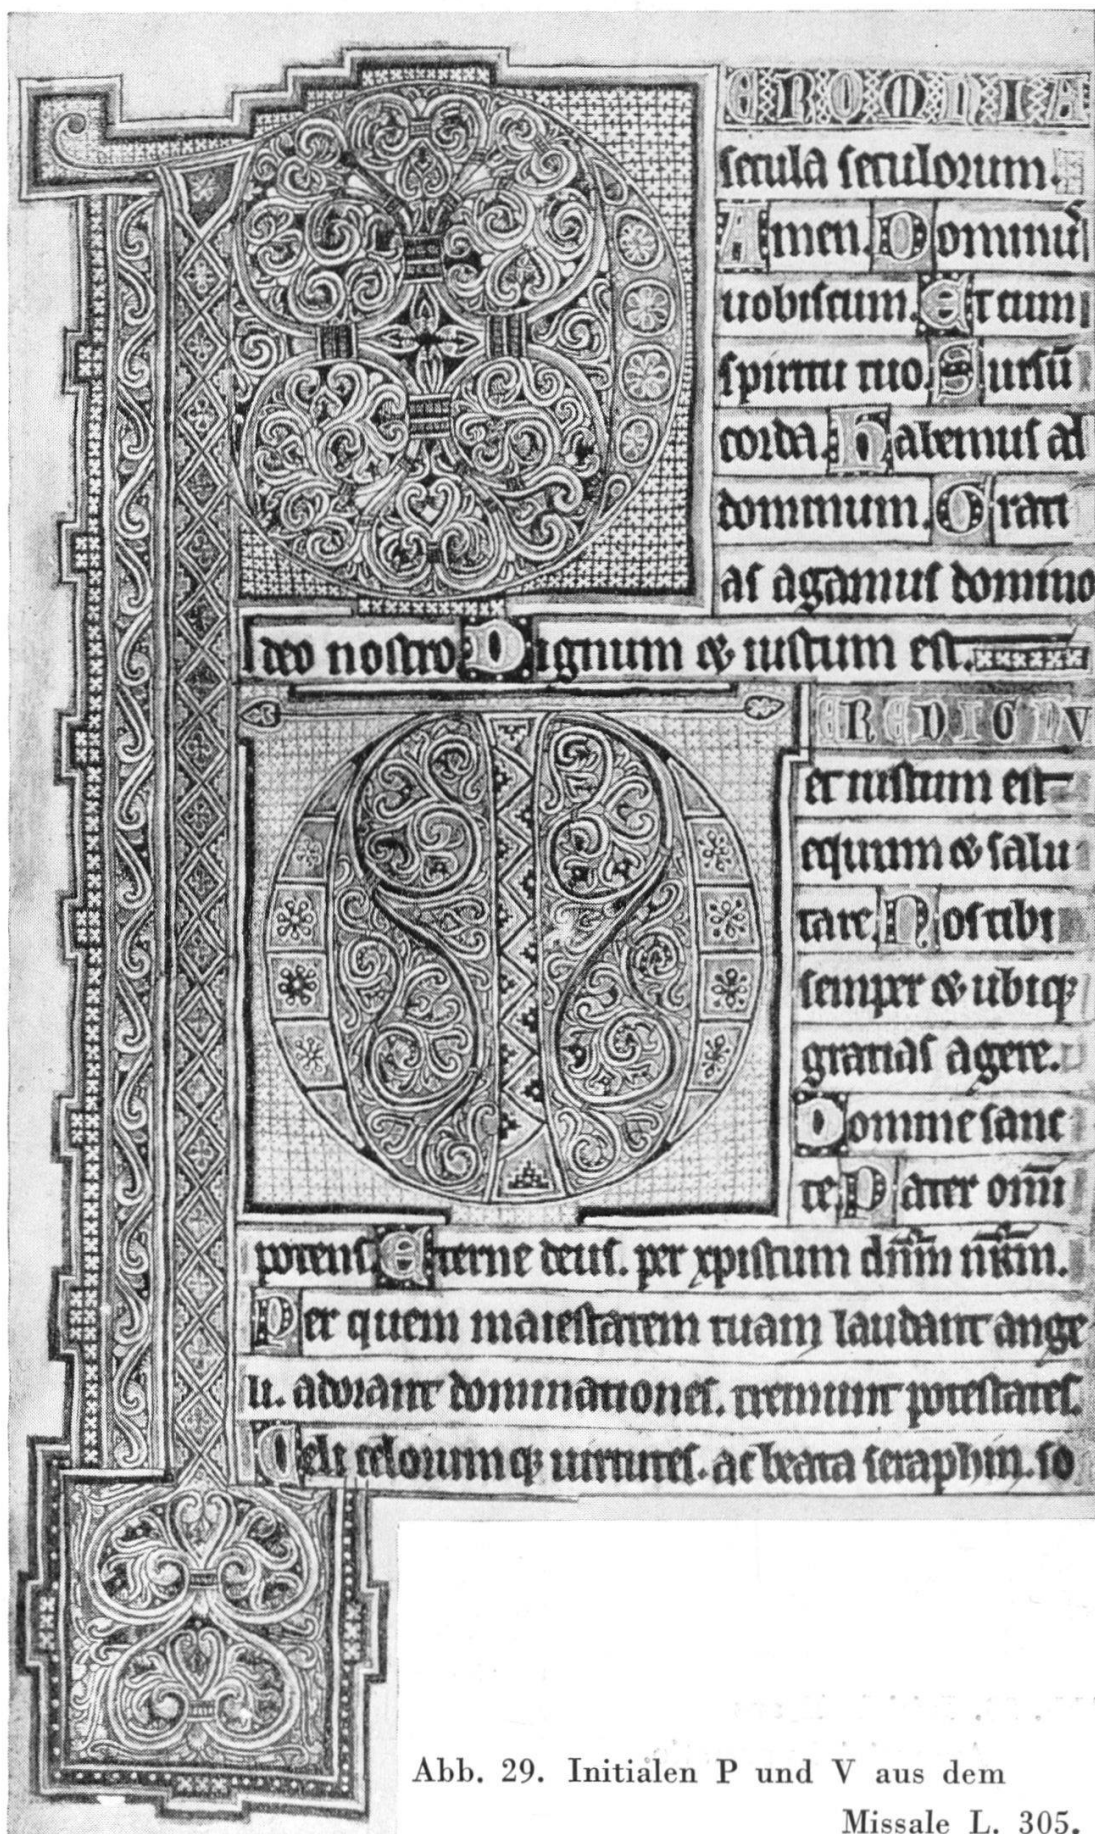 P ER OMNIA
secula seculorum.
Amen. Dominuſ
uobiscum. Et cum
spiritu tuo. Surſū
corda. Habemuſ ad
dominum. Grati
aſ agamuſ domino
deo nostro. Dignum & iustum est.
V ERE DIGNV
et iustum est
equum & salu
tare. Nos tibi
semper & ubiq;
gratiaſ agere.
Domine sanc
te. Pater omī
potenſ. Eterne deus. per xpistum dn̄m nr̄m.
Per quem maiestatem tuam laudant ange
li. adorant dominationeſ. tremunt potestateſ.
Celi celorumq; uirtuteſ. ac beata seraphin. so
Abb. 29. Initialen P und V aus dem
Missale L. 305.